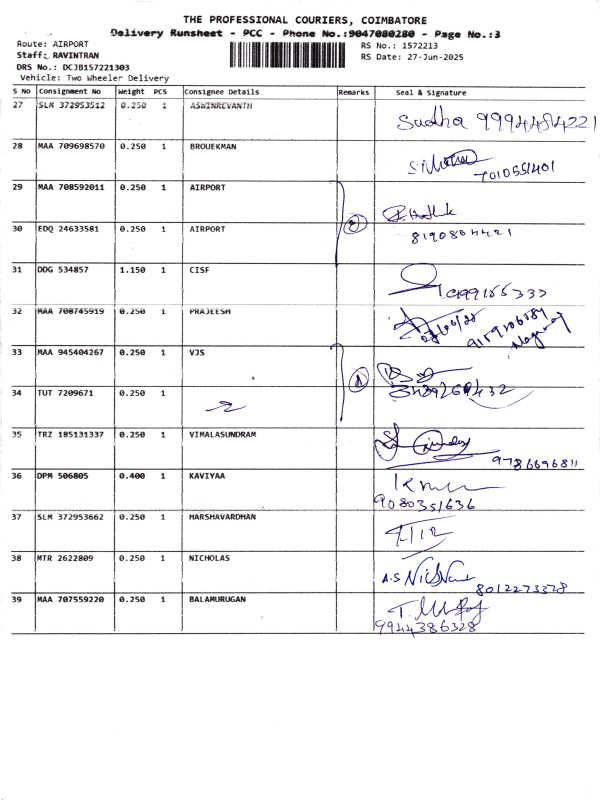 THE PROFESSIONAL COURIERS, COIMBATORE
Delivery Runsheet - PCC - Phone No.:9047080280 - Page No.:3
Route: AIRPORT
Staff: RAVINTRAN
DRS No.: DCJB157221303
Vehicle: Two Wheeler Delivery
RS No.: 1572213
RS Date: 27-Jun-2025
S No Consignment No Weight PCS Consignee Details Remarks Seal & Signature
27 SLM 372953512 0.250 1 ASWINREVANTH Sudha 9994484221
28 MAA 709698570 0.250 1 BROUEKMAN 7010551401
29 MAA 708592011 0.250 1 AIRPORT
30 EDQ 24633581 0.250 1 AIRPORT 2 8190804421
31 DDG 534857 1.150 1 CISF
32 MAA 708745919 0.250 1 PRAJEESH
33 MAA 945404267 0.250 1 VJS
34 TUT 7209671 0.250 1
35 TRZ 185131337 0.250 1 VIMALASUNDRAM 9786696811
36 DPM 506805 0.400 1 KAVIYAA 9080351636
37 SLM 372953662 0.250 1 HARSHAVARDHAN
38 MTR 2622809 0.250 1 NICHOLAS 8012273378
39 MAA 707559220 0.250 1 BALAMURUGAN 9944386328